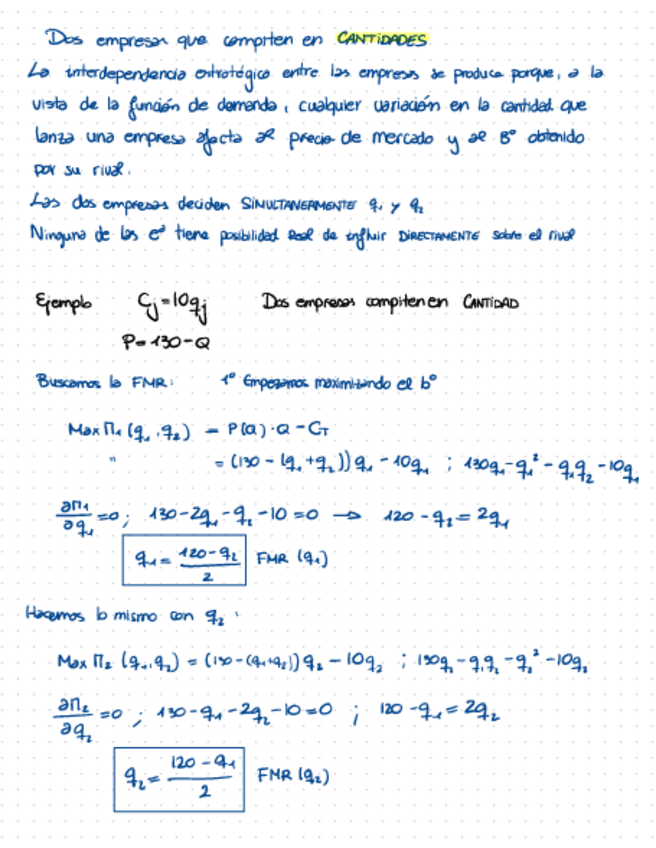 Dos empresas que compiten en CANTIDADES
La interdependencia estratégica entre las empresas se produce porque, a la
vista de la función de demanda, cualquier variación en la cantidad que
lanza una empresa afecta al precio de mercado y al Bº obtenido
por su rival.
Las dos empresas deciden SIMULTANEAMENTE q₁ y q₂
Ninguna de las eª tiene posibilidad Real de influir DIRECTAMENTE sobre el rival
Ejemplo Cj = 10qj Dos empresas compiten en CANTIDAD
P = 130 - Q
Buscamos la FMR: 1º Empezamos maximizando el bº
Max Π₁ (q₁, q₂) = P(Q)·Q - CT
" = (130 - (q₁ + q₂)) q₁ - 10q₁ ; 130q₁ - q₁² - q₁q₂ - 10q₁
∂Π₁/∂q₁ = 0 ; 130 - 2q₁ - q₂ - 10 = 0 → 120 - q₂ = 2q₁
q₁ = (120 - q₂)/2 FMR (q₁)
Hacemos lo mismo con q₂ :
Max Π₂ (q₁, q₂) = (130 - (q₁+q₂)) q₂ - 10q₂ ; 130q₂ - q₁q₂ - q₂² - 10q₂
∂Π₂/∂q₂ = 0 ; 130 - q₁ - 2q₂ - 10 = 0 ; 120 - q₁ = 2q₂
q₂ = (120 - q₁)/2 FMR (q₂)